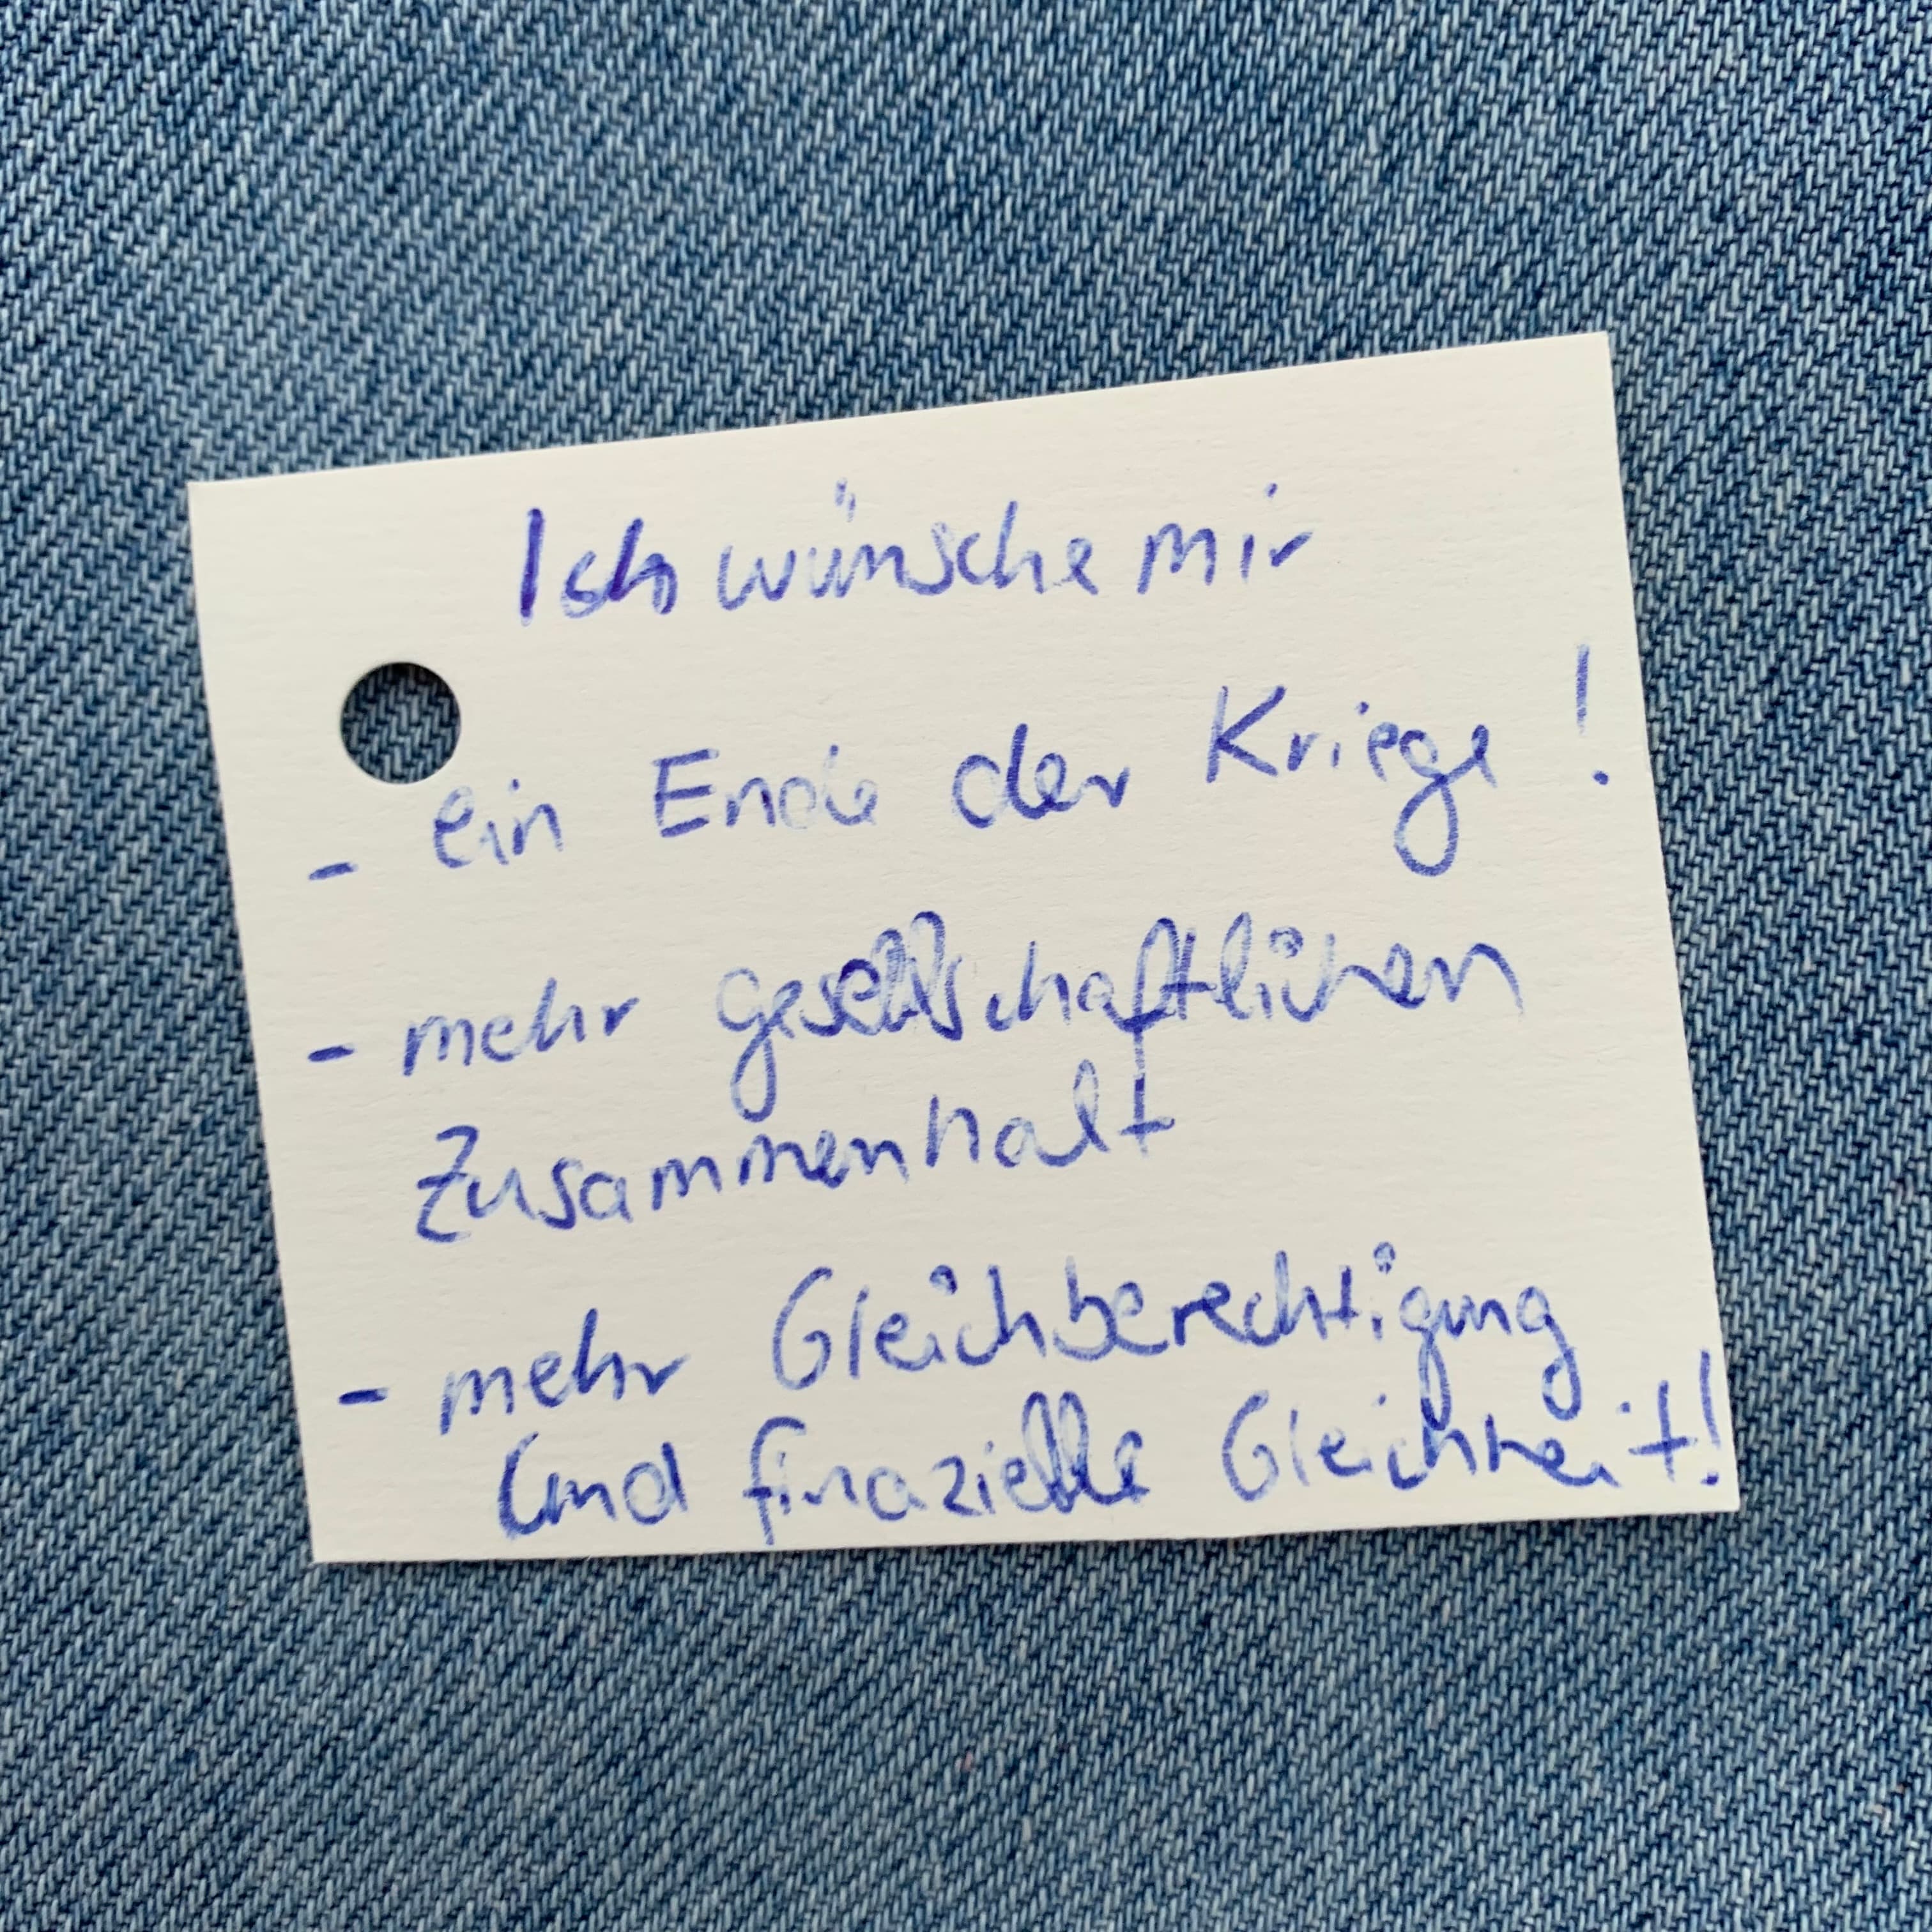 Ich wünsche mir
- ein Ende der Kriege!
- mehr gesellschaftlichen
Zusammenhalt
- mehr Gleichberechtigung
und finazielle Gleichheit!